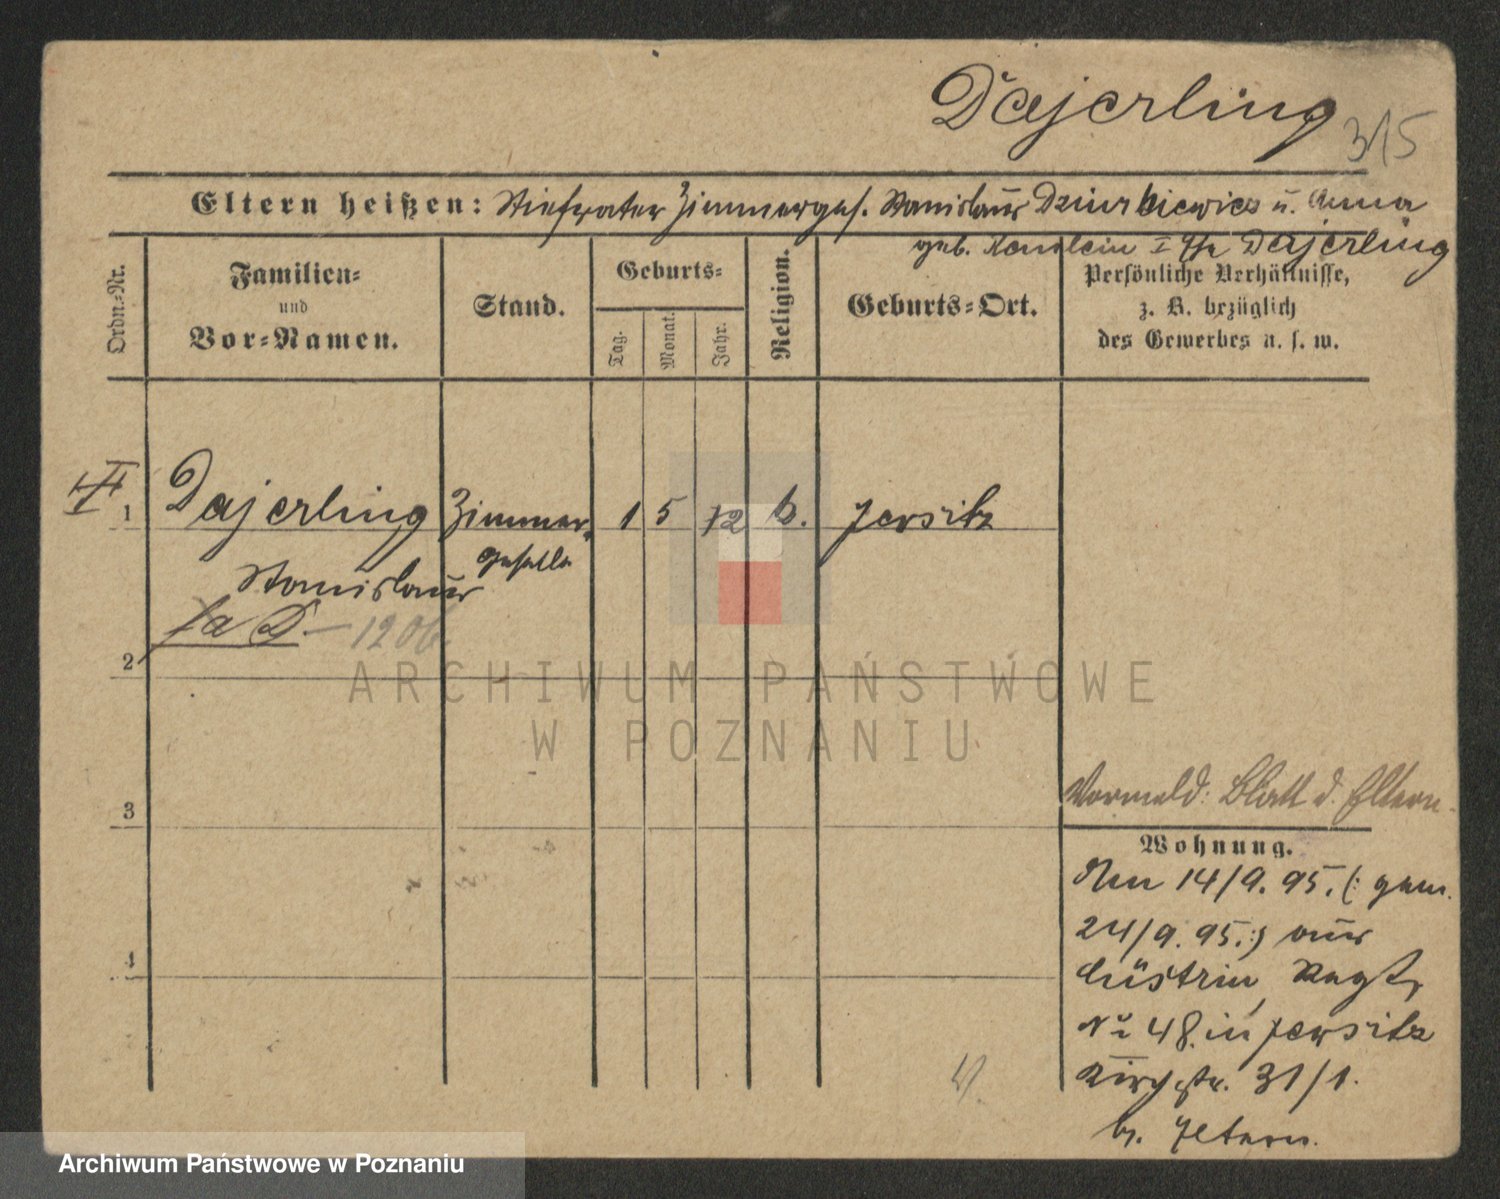 Dajerling
315
Eltern heißen: Stiefvater Zimmerges. Stanislaus Dziurkiewicz u. Anna
geb. I Ehe Dajerling
Ordn.=Nr.
Familien=
und
Vor=Namen.
Stand.
Geburts=
Tag.
Monat.
Jahr.
Religion.
Geburts=Ort.
Persönliche Verhältnisse,
z. B. bezüglich
des Gewerbes u. s. w.
1 Dajerling Zimmer= 1 5 72 k. Jersitz
geselle
Stanislaus
1206.
2
3
4
Vermeld: Blatt d. Eltern.
Wohnung.
Am 14/9. 95. (: gem.
24/9. 95. :) aus
Cüstrin, Regt,
No 48. in Jersitz
Kirchstr. 31/1.
b. Eltern.
ARCHIWUM PAŃSTWOWE
W POZNANIU
Archiwum Państwowe w Poznaniu